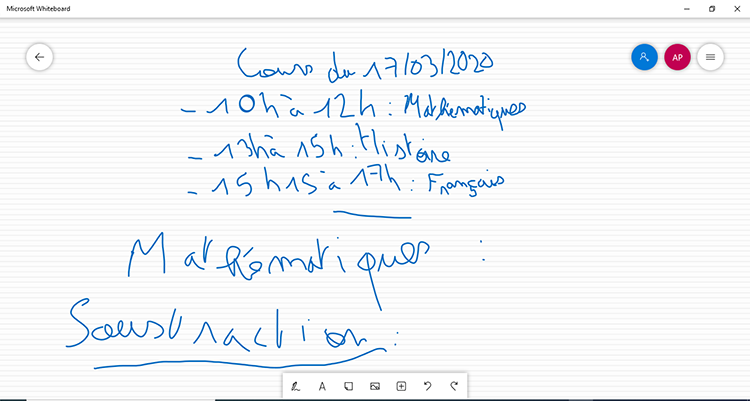 Microsoft Whiteboard
AP
Cours du 17/03/2020
- 10h à 12h : Mathématiques
- 13h à 15h : Histoire
- 15h15 à 17h : Français
Mathématiques :
Soustraction :
A